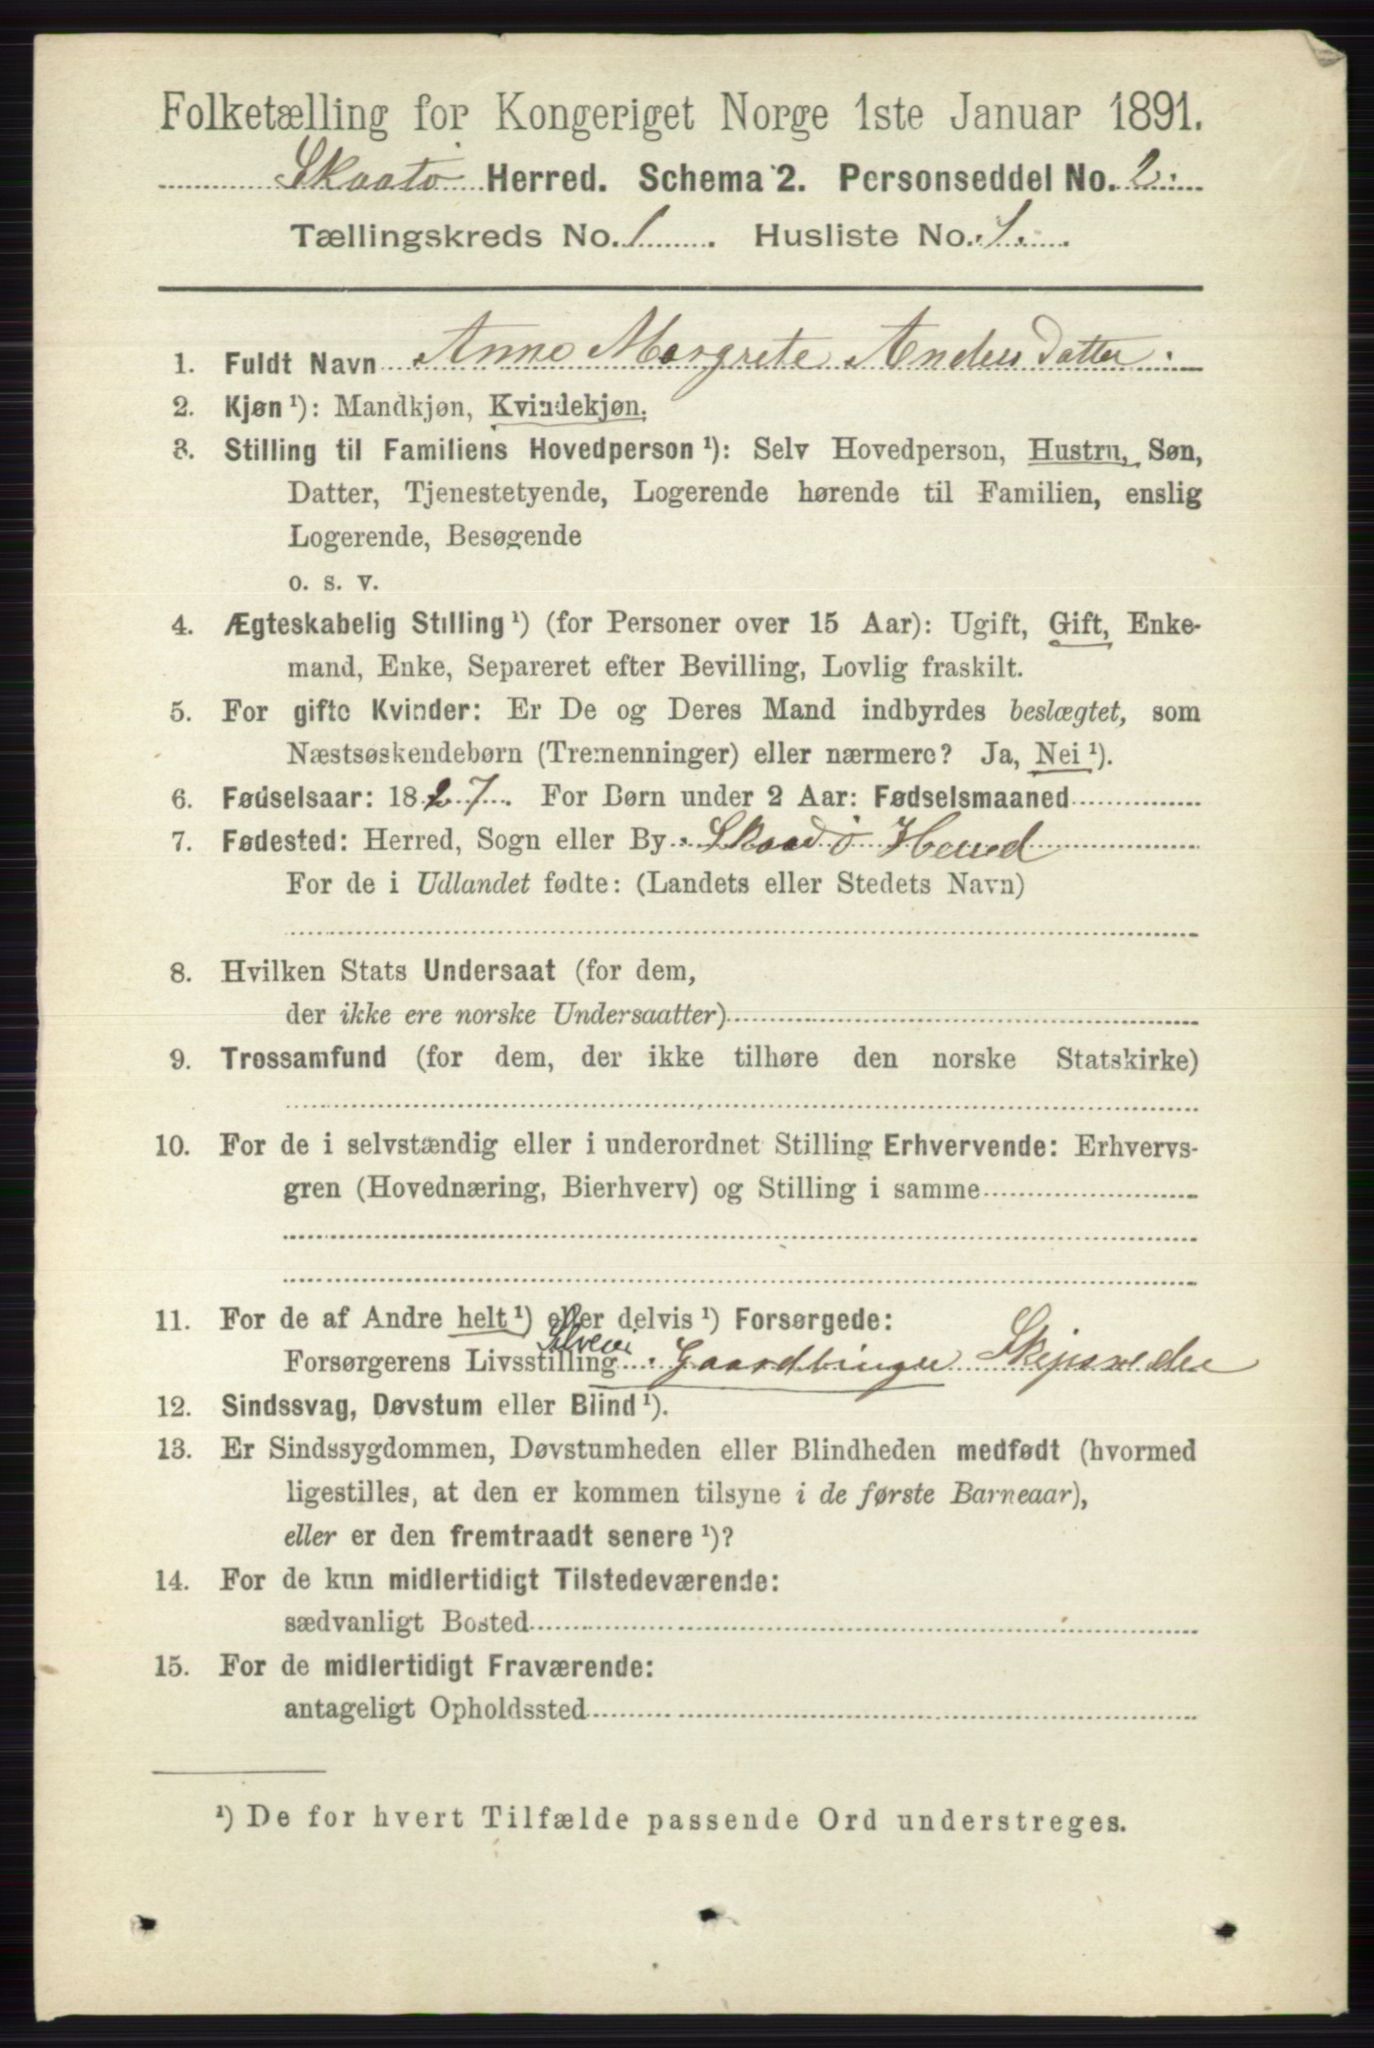 Folketælling for Kongeriget Norge 1ste Januar 1891.
Skaatø Herred. Schema 2. Personseddel No. 2.
Tællingskreds No. 1. Husliste No. 1.
1. Fuldt Navn Anne Margrete Andersdatter.
2. Kjøn ¹): Mandkjøn, Kvindekjøn.
3. Stilling til Familiens Hovedperson ¹): Selv Hovedperson, Hustru, Søn,
Datter, Tjenestetyende, Logerende hørende til Familien, enslig
Logerende, Besøgende
o. s. v.
4. Ægteskabelig Stilling ¹) (for Personer over 15 Aar): Ugift, Gift, Enke-
mand, Enke, Separeret efter Bevilling, Lovlig fraskilt.
5. For gifte Kvinder: Er De og Deres Mand indbyrdes beslægtet, som
Næstsøskendebørn (Tremenninger) eller nærmere? Ja, Nei ¹).
6. Fødselsaar: 1827. For Børn under 2 Aar: Fødselsmaaned
7. Fødested: Herred, Sogn eller By Skaadø Herred
For de i Udlandet fødte: (Landets eller Stedets Navn)
8. Hvilken Stats Undersaat (for dem,
der ikke ere norske Undersaatter)
9. Trossamfund (for dem, der ikke tilhøre den norske Statskirke)
10. For de i selvstændig eller i underordnet Stilling Erhvervende: Erhvervs-
gren (Hovednæring, Bierhverv) og Stilling i samme
11. For de af Andre helt ¹) eller delvis ¹) Forsørgede:
Selveier
Forsørgerens Livsstilling Gaardbruger Skipsreder
12. Sindssvag, Døvstum eller Blind ¹).
13. Er Sindssygdommen, Døvstumheden eller Blindheden medfødt (hvormed
ligestilles, at den er kommen tilsyne i de første Barneaar),
eller er den fremtraadt senere ¹)?
14. For de kun midlertidigt Tilstedeværende:
sædvanligt Bosted
15. For de midlertidigt Fraværende:
antageligt Opholdssted
¹) De for hvert Tilfælde passende Ord understreges.